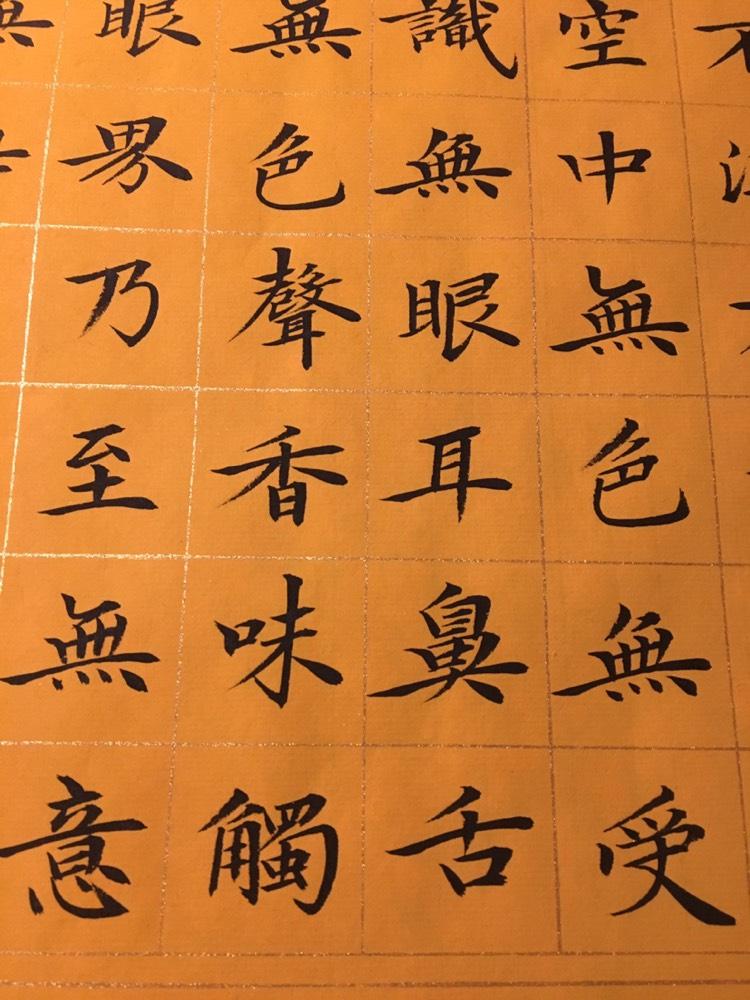 空中無色無受
識無眼耳鼻舌
無色聲香味觸
眼界乃至無意